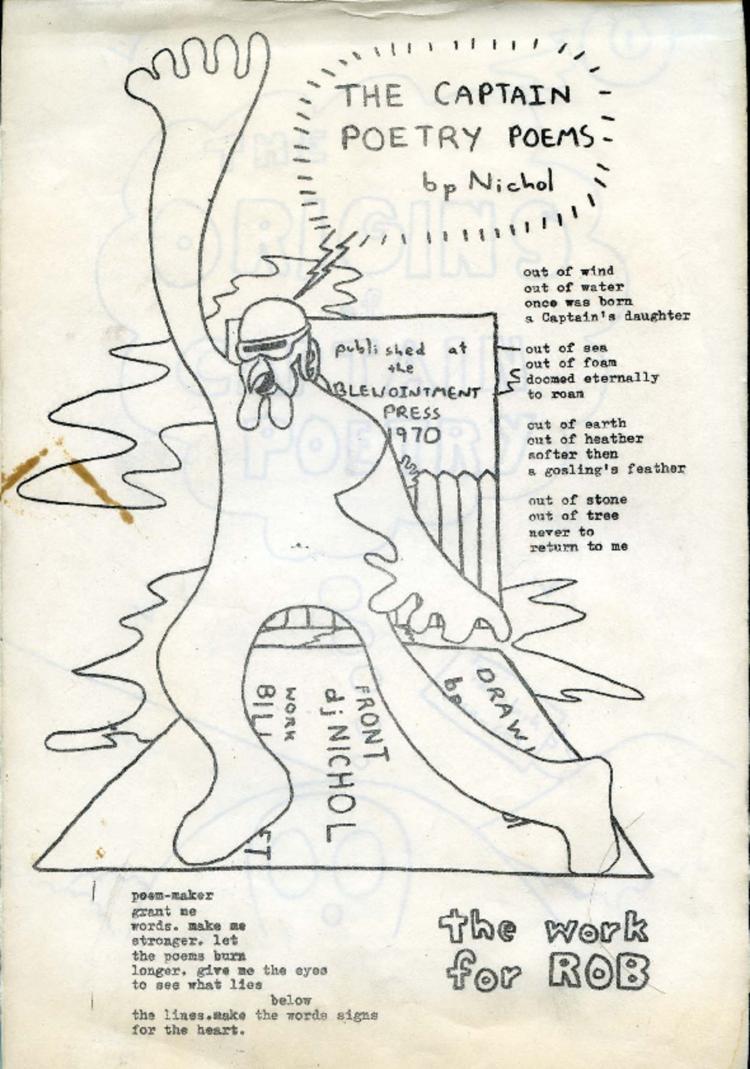 THE CAPTAIN
POETRY POEMS
bp Nichol
out of wind
out of water
once was born
a Captain's daughter
out of sea
out of foam
doomed eternally
to roam
out of earth
out of heather
softer then
a gosling's feather
out of stone
out of tree
never to
return to me
published at
the
BLEWOINTMENT
PRESS
1970
DRAW
bp
FRONT
dj NICHOL
WORK
BILL
poem-maker
grant me
words. make me
stronger. let
the poems burn
longer. give me the eyes
to see what lies
below
the lines.make the words signs
for the heart.
the work
for ROB
THE
ORIGINS
of
CAPTAIN
POETRY